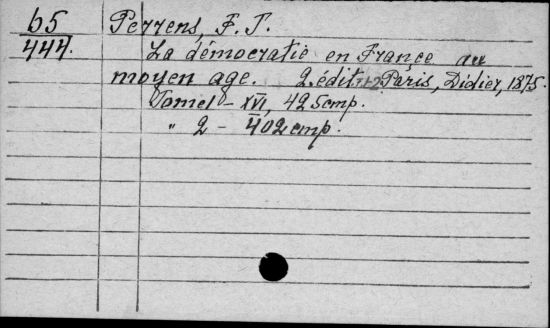 65 Perrens, F. T.
444. La démocratie en France au
moyen age. 2. édit. Paris, Didier, 1875.
Tome 1 - XVI, 425 cmp.
" 2 - 402 cmp.